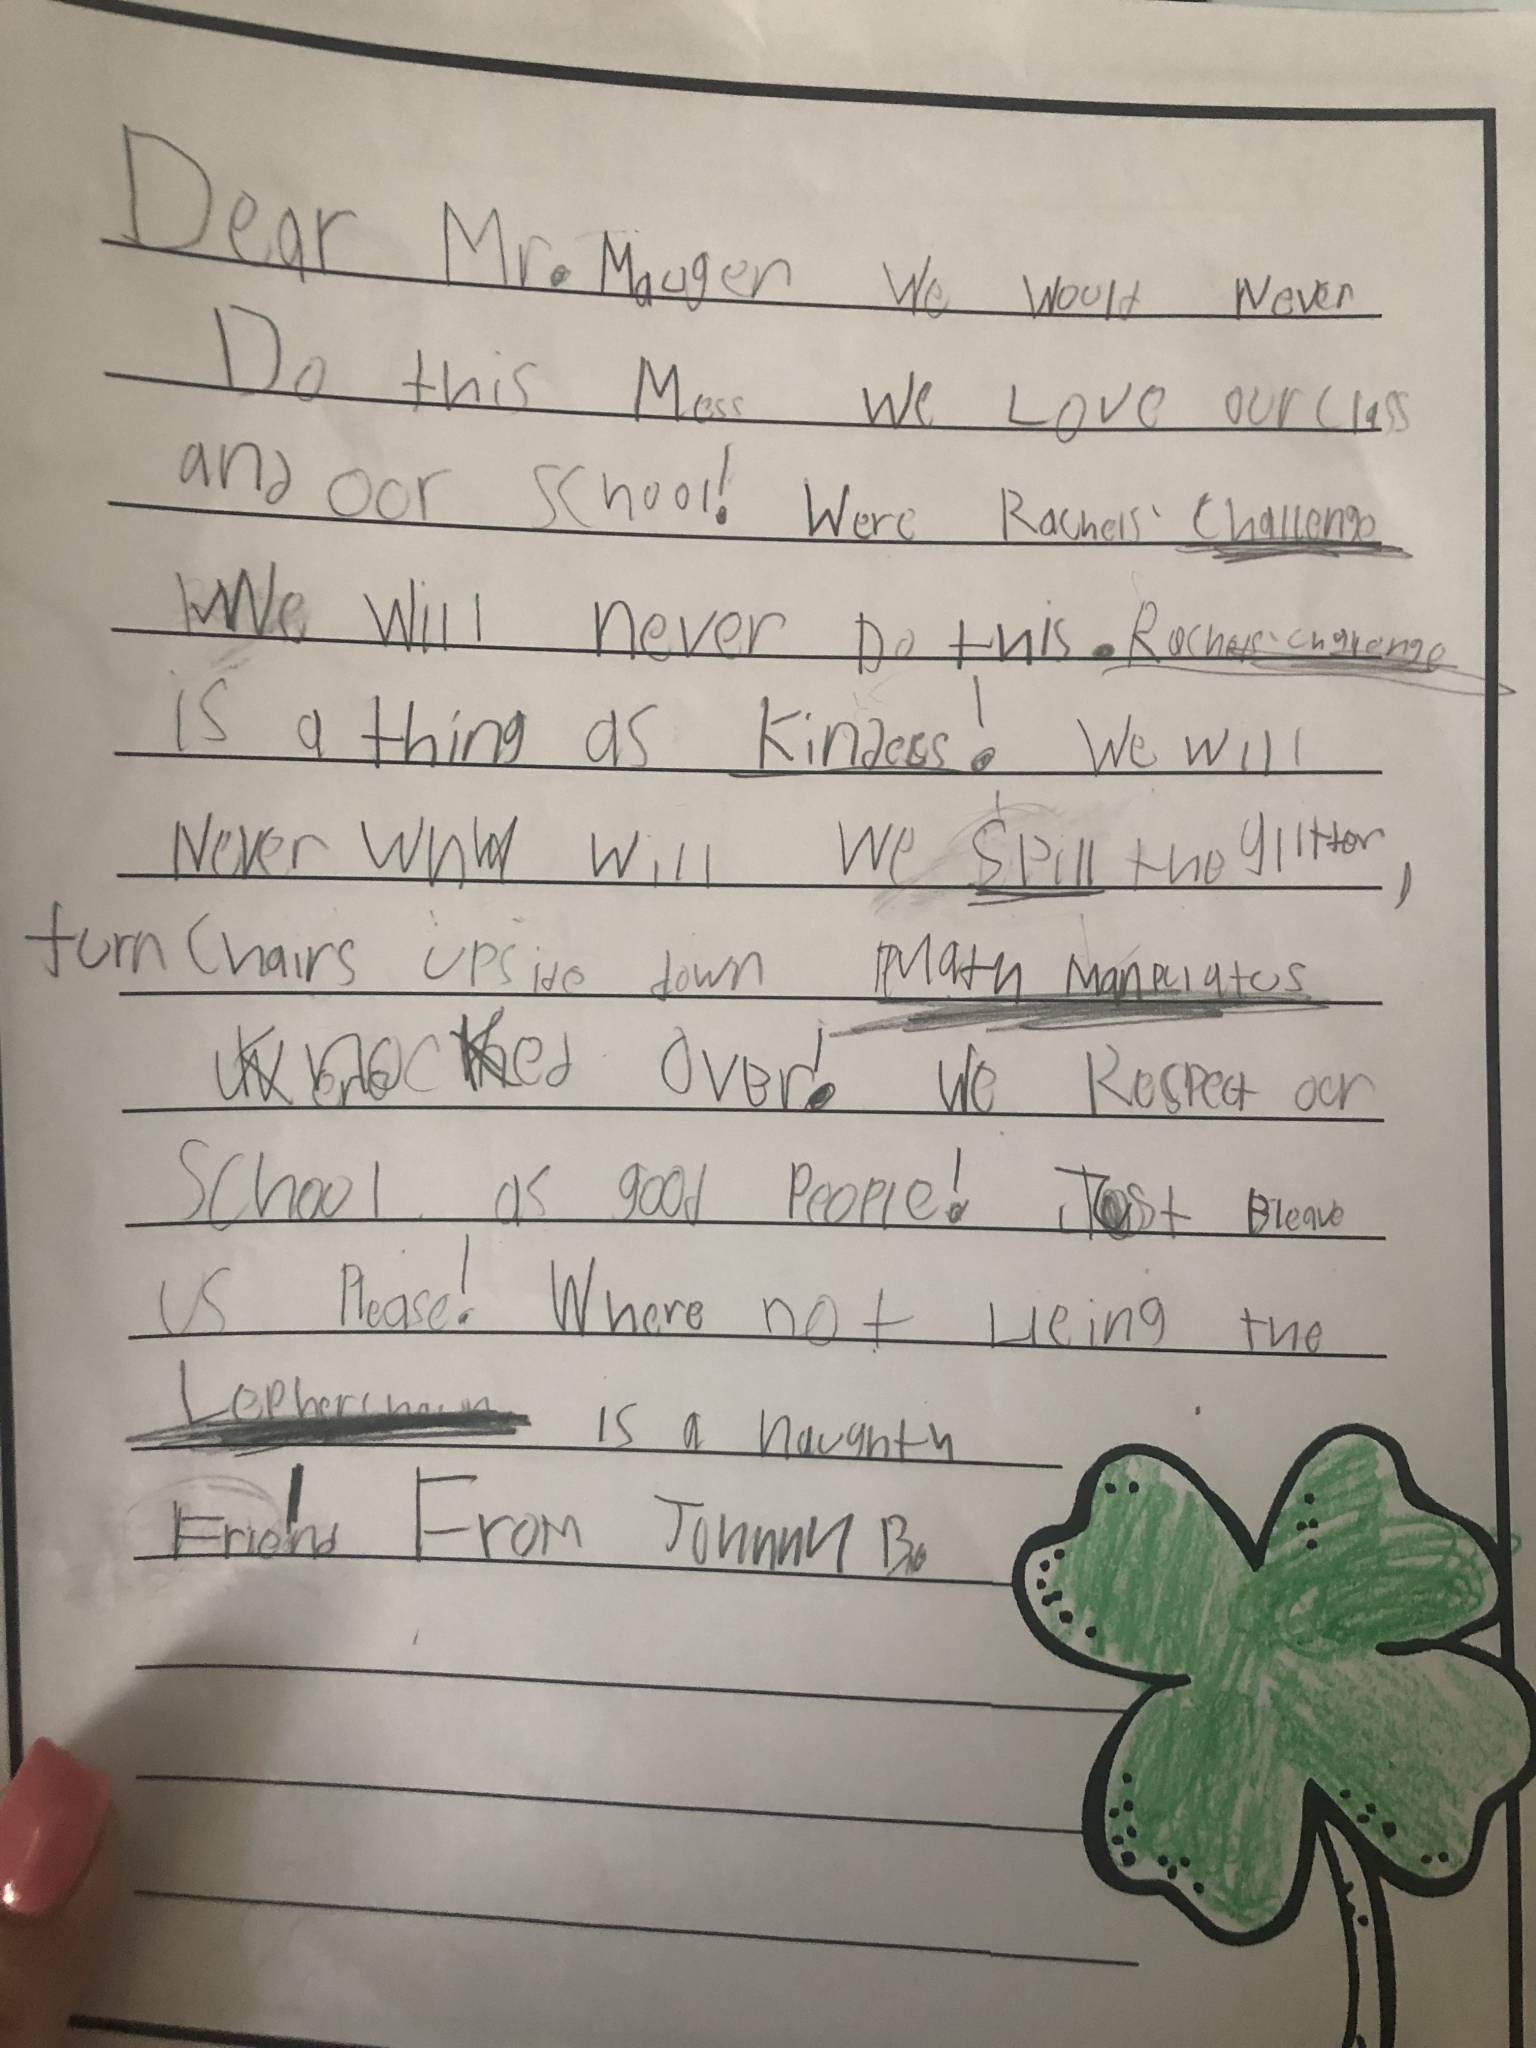 Dear Mr. Maugen We Would Never
Do this Mess We Love our class
and oor School! Were Rachels' Challenge
We Will never Do this. Rachels' Challenge
is a thing as Kindess! We will
Never Will We Spill the glitter,
turn Chairs upside down Math Manpulatus
knocked Over! We Respect our
School as good People! Just Bleave
us Please! Where not Lieing the
Lepherchaun is a naughty
Friend! From Johnny B.